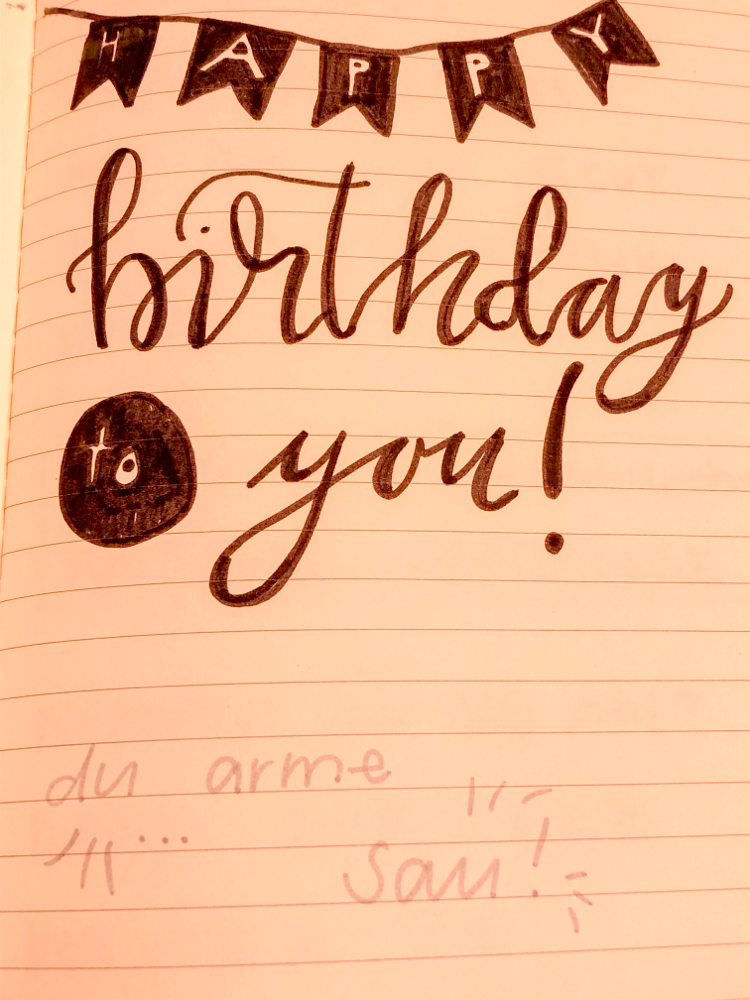 HAPPY
birthday
to you!
du arme
...
Sau!